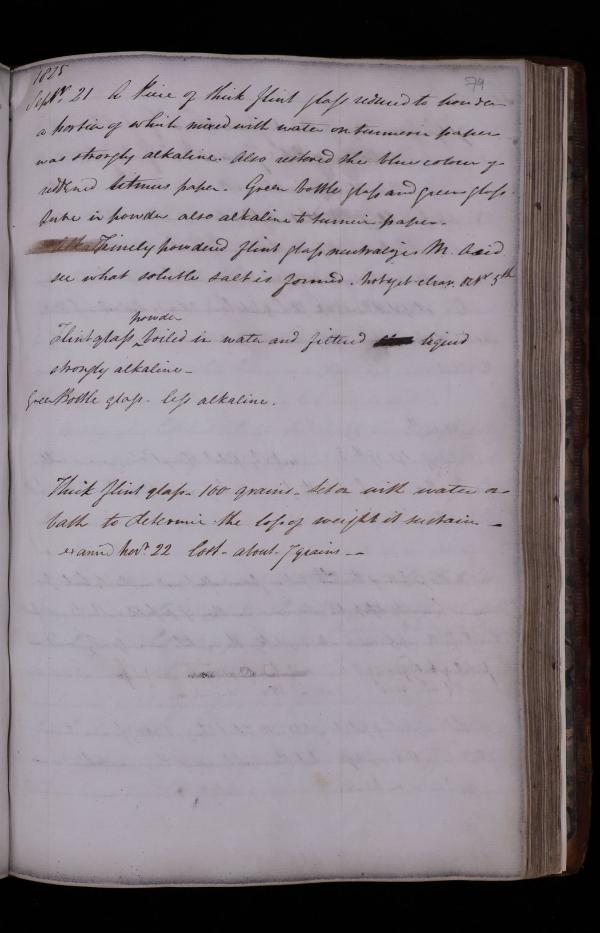 1825
79
Sepr. 21 A Piece of thick flint glass reduced to powder
a portion of which mixed with water on turmeric paper
was strongly alkaline. Also restored the blue colour of
reddened litmus paper. Green bottle glass and green glass
tube in powder also alkaline to turmeric paper.
Finely powdered flint glass neutralizes M. Acid
see what soluble salt is formed. Not yet clear. Octr 5th
powder
Flint glass boiled in water and filtered liquid
strongly alkaline -
Green Bottle glass - less alkaline.
Thick flint glass - 100 grains - set on with water on
bath to determine the loss of weight it sustain -
examd Novr. 22 Lost - about 7 grains -